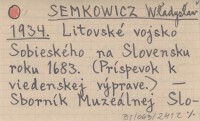 SEMKOWICZ Władysław
1934. Litovské vojsko
Sobieského na Slovensku
roku 1683. (Príspevok k
viedenskej výprave.) —
Sborník Muzeálnej Slo-